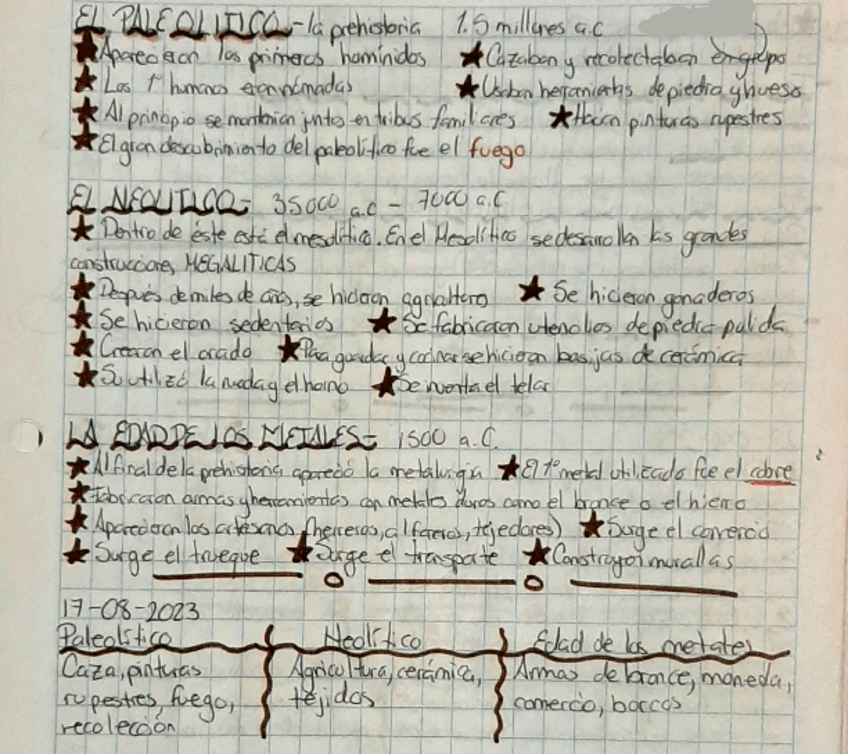 EL PALEOLITICO - la prehistoria 1.5 millones a.C
★ Aparecieron los primeros homínidos ★ Cazaban y recolectaban en grupo
★ Los 1º humanos eran nómadas ★ Usaban herramientas de piedra y hueso
★ Al principio se mantenían juntos en tribus familiares ★ Hacían pinturas rupestres
★ El gran descubrimiento del paleolítico fue el fuego
EL NEOLITICO - 35000 a.C - 7000 a.C
★ Dentro de éste está el mesolítico. En el Mesolítico se desarrollan las grandes
construcciones MEGALITICAS
★ Después de miles de años, se hicieron agricultores ★ Se hicieron ganaderos
★ Se hicieron sedentarios ★ Se fabricaron utensilios de piedra pulida
★ Crearon el arado ★ Para guardar y cocinar se hicieron basijas de cerámica
★ Se utilizó la rueda y el horno ★ Se inventa el telar
LA EDAD DE LOS METALES - 1500 a.C.
★ Al final de la prehistoria apareció la metalurgia ★ El 1º metal utilizado fue el cobre
★ Fabricaron armas y herramientas con metales duros como el bronce o el hierro
★ Aparecieron los artesanos (herreros, alfareros, tejedores) ★ Surge el comercio
★ Surge el trueque ★ Surge el transporte ★ Construyen murallas
17-08-2023
Paleolítico Neolítico Edad de los metales
Caza, pinturas Agricultura, cerámica, Armas de bronce, moneda,
rupestres, fuego, tejidos comercio, barcos
recolección